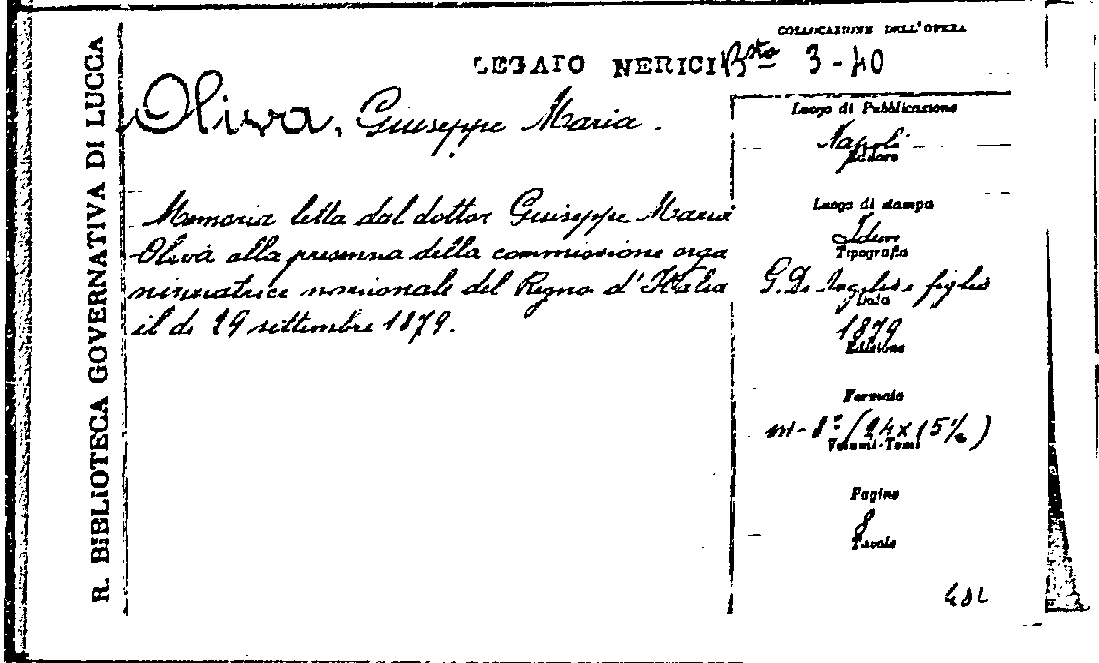 R. BIBLIOTECA GOVERNATIVA DI LUCCA
COLLOCAZIONE DELL'OPERA
LEGATO NERICI Bta 3-40
Oliva, Giuseppe Maria.
Memoria letta dal dottor Giuseppe Maria
Oliva alla presenza della commissione orga
nizzatrice nazionale del Regno d'Italia
il dì 29 settembre 1879.
Luogo di Pubblicazione
Napoli
Editore
Luogo di stampa
Idem
Tipografia
G. De Angelis e figlio
Data
1879
Edizione
Formato
in-8° (24x15½)
Volumi-Tomi
Pagine
8
Tavole